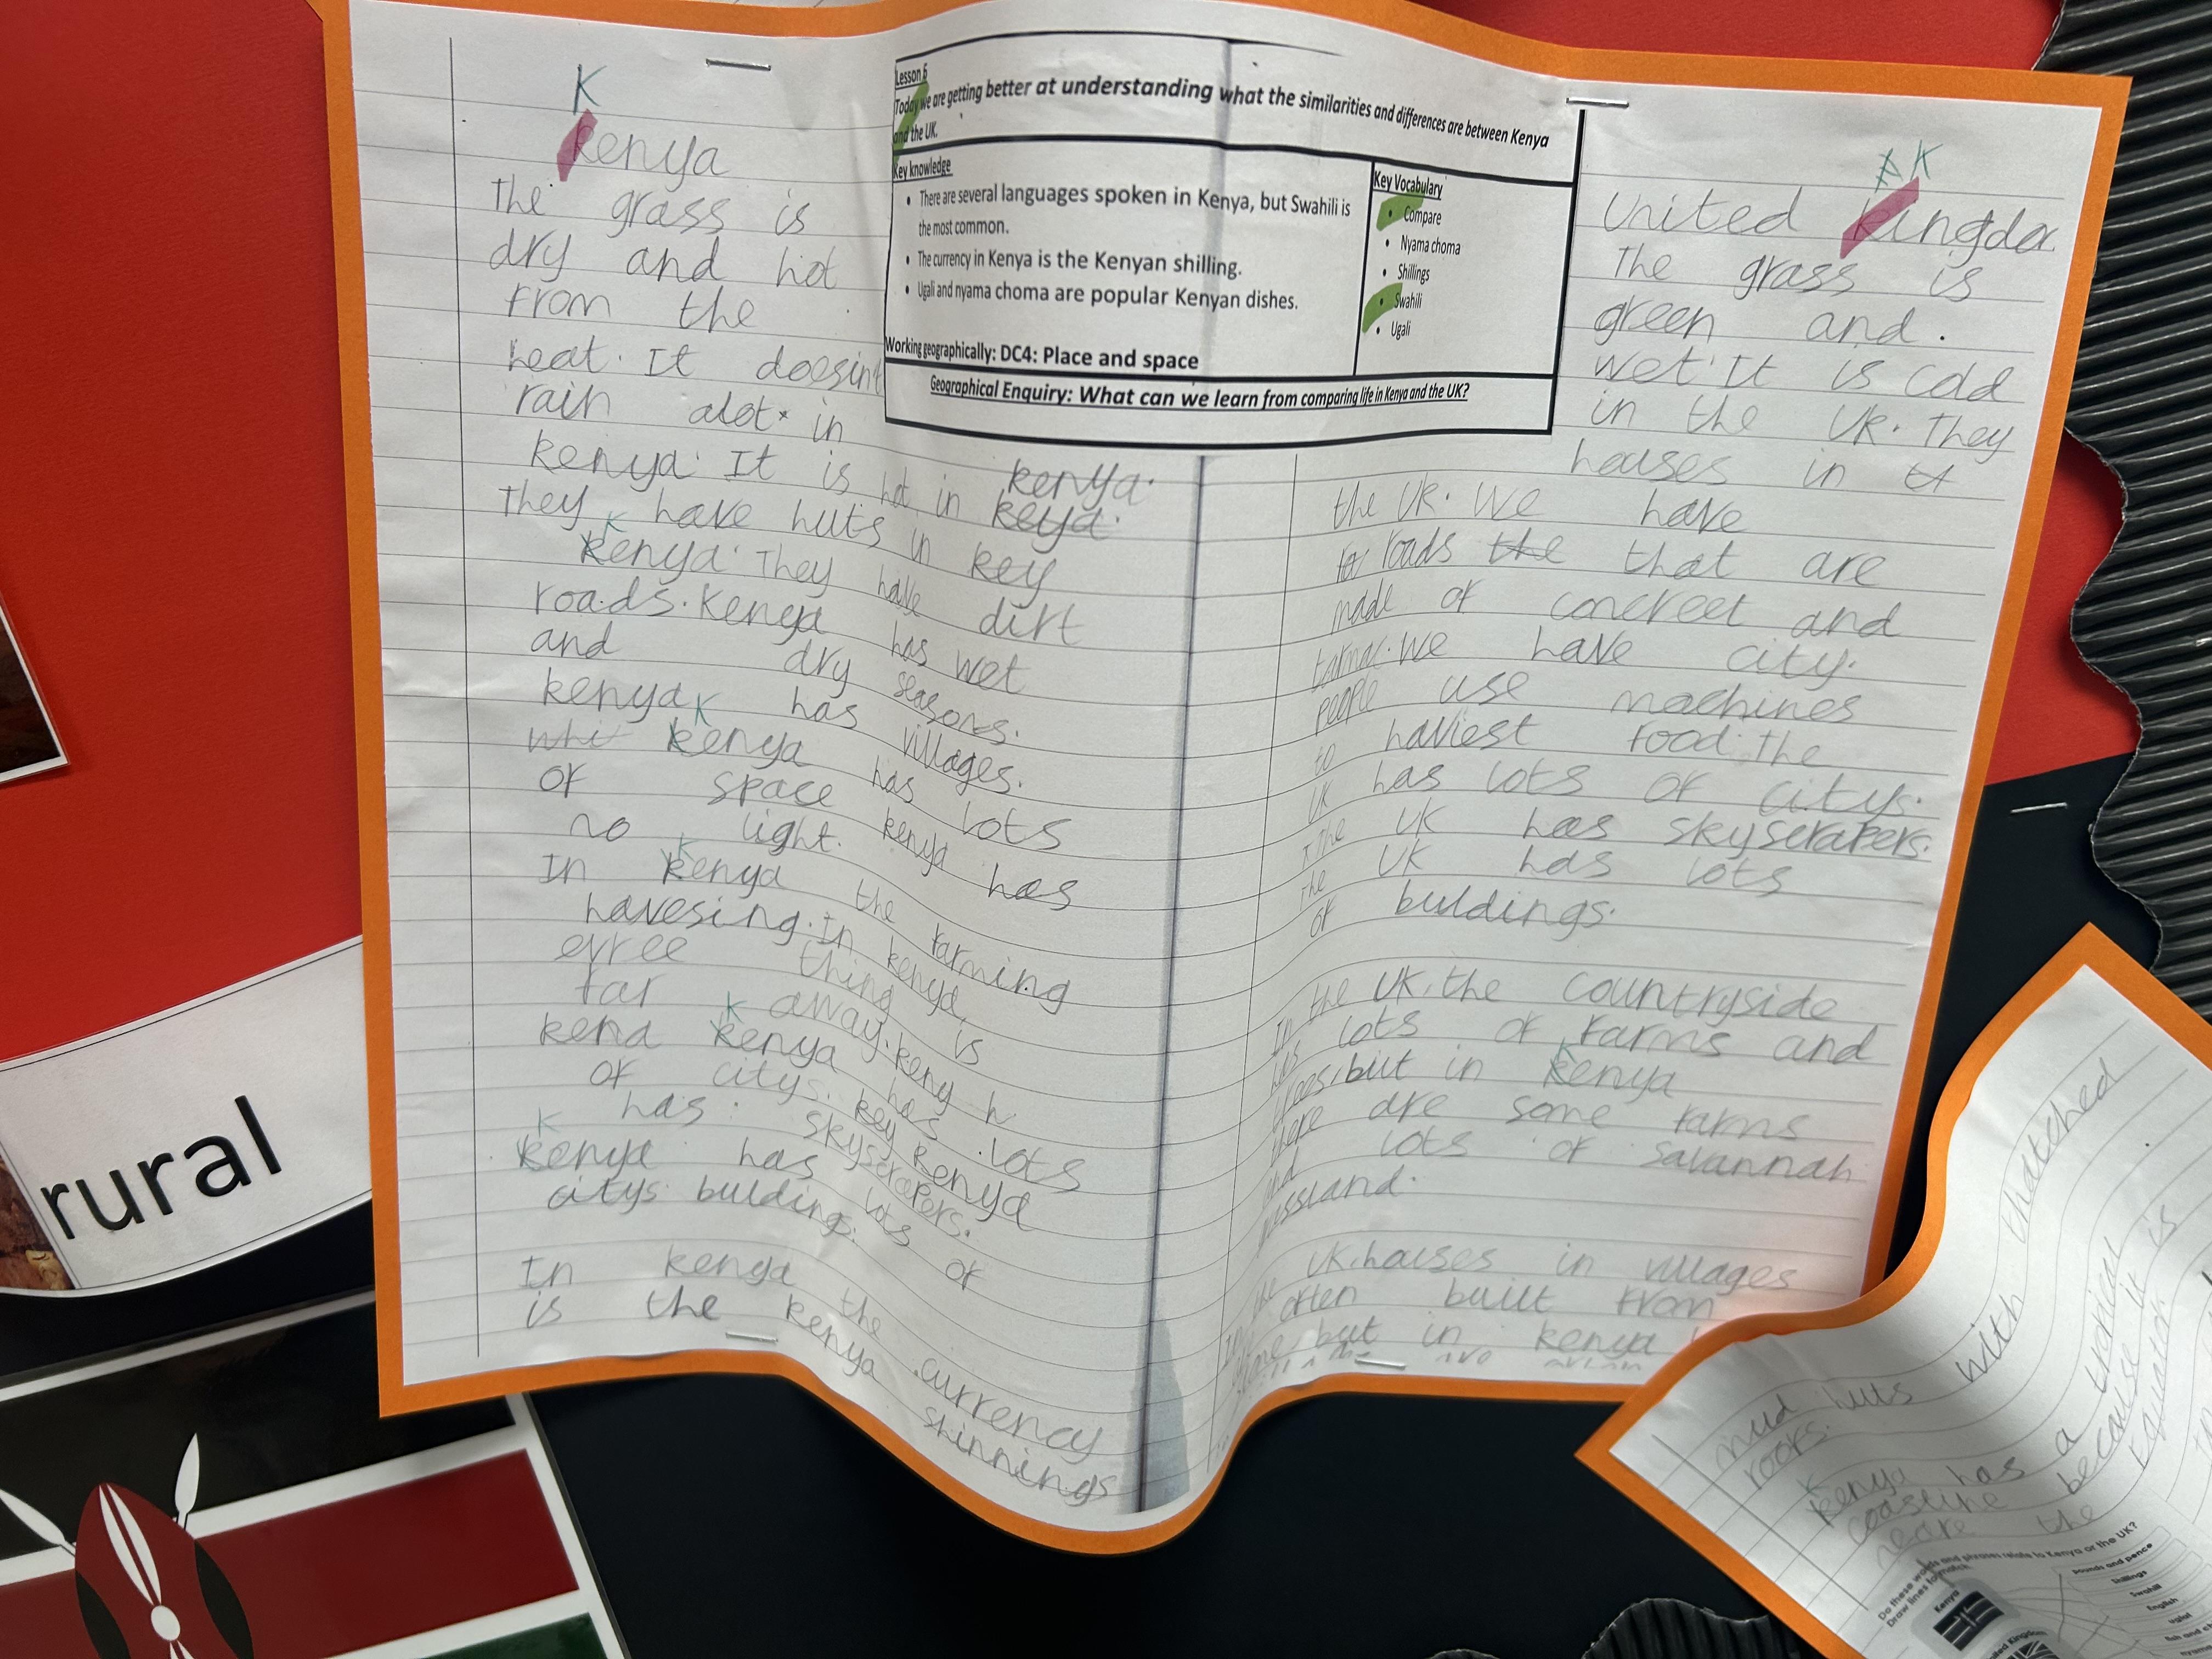 Lesson 6
Today we are getting better at understanding what the similarities and differences are between Kenya
and the UK.
Key knowledge
• There are several languages spoken in Kenya, but Swahili is
the most common.
• The currency in Kenya is the Kenyan shilling.
• Ugali and nyama choma are popular Kenyan dishes.
Working geographically: DC4: Place and space
Key Vocabulary
• Compare
• Nyama choma
• Shillings
• Swahili
• Ugali
Geographical Enquiry: What can we learn from comparing life in Kenya and the UK?
K
kenya
The grass is
dry and hot
from the
heat. It doesin't
rain alot in
kenya. It is hot in kenya.
They have huts in keya.
K
kenya. They have key
roads. Kenya has dirt
and dry seasons. wet
kenya has villages.
K
whi kenya has lots
of space
no light. kenya has
K
In kenya the farming
havesing. In kenya,
evree thing is
far away. keny h
K
kena kenya has lots
of citys. key kenya
has skyscrapers.
K
kenya has lots of
citys buldings.
In kenya the currency
is the kenya shinnings
K
United kingdo
The grass is
green and
wet. It is cold
in the UK. They
houses in
the UK. We have
roads the that are
made of concreet and
We have city.
people use machines
to haviest food. The
UK has lots of citys.
The UK has skyscrapers.
The UK has lots
of buldings.
In the UK, the countryside
has lots of farms and
trees, but in kenya
K
there are some farms
and lots of savannah
grassland.
UK, houses in villages
often built from
but in kenya
rural
mud huts with thatched
roofs.
K
kenya has a tropical
coastline because it is
near the Equator
Do these words and phrases relate to Kenya or the UK?
Draw lines to match.
Kenya
United Kingdom
Pounds and pence
Shillings
Swahili
English
Ugali